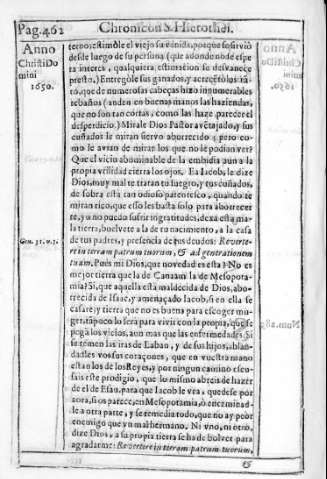 Pag. 462 Chronicon S. Hierothei.
Anno
Christi Do
mini
1650.
terno: estimòle el viejo la venida, porque se sirviò
desde luego de su persona (que adonde no de espe
ra interes, qualquiera estimacion se desvanece
presto.) Entregòle sus ganados, y acrecètòlos tã-
to, que de numerosas cabeças hizo innumerables
rebaños (anden en buenas manos las haziendas,
que no son tan cortas, como las haze parecer el
desperdicio.) Mirale Dios Pastor avẽtajado, y sus
cuñados le miran siervo aborrecido; pero co-
mo le avian de mirar los que no le podian ver?
Que el vicio abominable de la embidia aun a la
propia vtilidad cierra los ojos. Ea Iacob, le dize
Dios, muy mal te tratan tu suegro, y tus cuñados,
de sobra està tan odioso parentesco, quando te
miran rico, que esso les basta solo para aborrecer
te, y u no puedo sufrir ingratitudes, dexa està ma-
la tierra, buelvete a la de tu nacimiento, a la casa
de tus padres, y presencia de tus deudos: Reverte-
Gen. 31. v. 3.
re in terram patrum tuorum, & ad generationem
tuam. Pues mi Dios, que novedad es esta? No es
mejor tierra que la de Canaan la de Mesopota-
mia? Si, que aquella està maldecida de Dios, abo-
rrecida de Isaac, y amenaçado Iacob, si en ella se
casare, y tierra que no es buena para escoger mu-
ger, tãpoco lo serà para vivir con la propia, que se
pegã los vicios, aun mas que las enfermedades. Si
se temen las iras de Laban, y de sus hijos, ablan-
dadles vos sus coraçones, que en vuestra mano
estan los de los Reyes, y por ningun camino escu-
sais este prodigio, que lo mismo avreis de hazer
de el de Esau, para que Iacob le vea, quedese por
aora, si os parece, en Mesopotamia, ò encaminad-
le a otra parte, y se remedia todo, que no ay peor
enemigo que vn mal hermano. Ni vno, ni otro,
dize Dios, a su propia tierra se ha de bolver para
agradarme: Revertere in terram patrum tuorum,
&